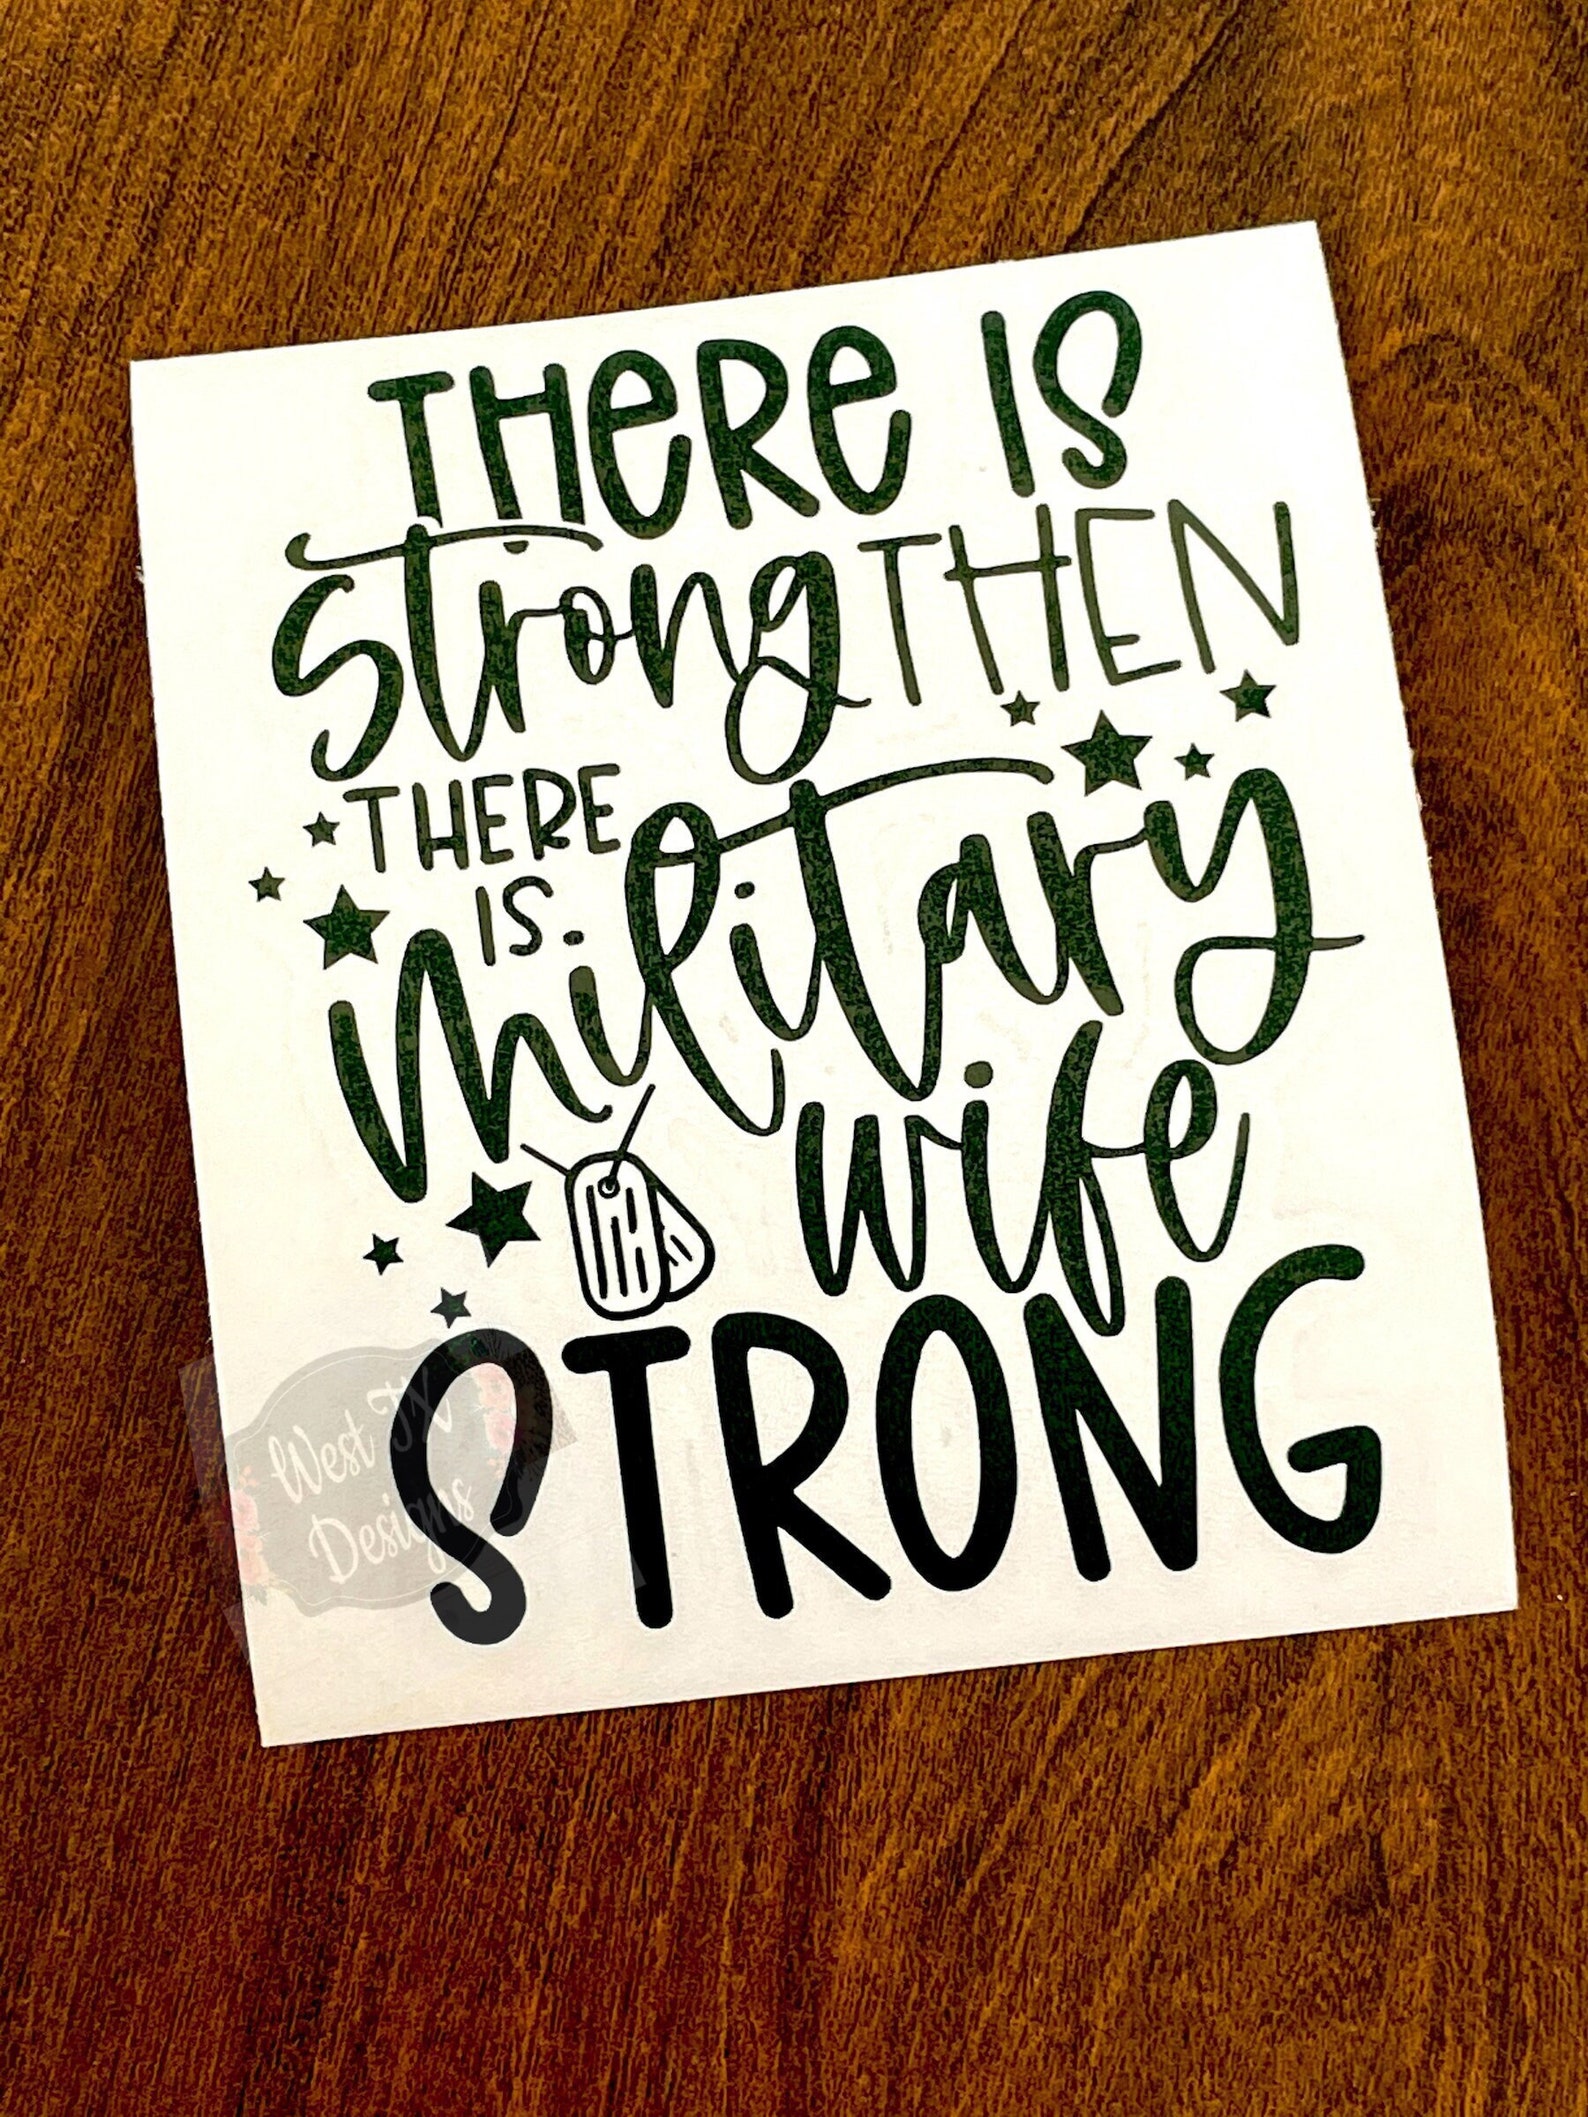 THERE IS
strong THEN
THERE
IS
military
wife
STRONG
West TX
Designs